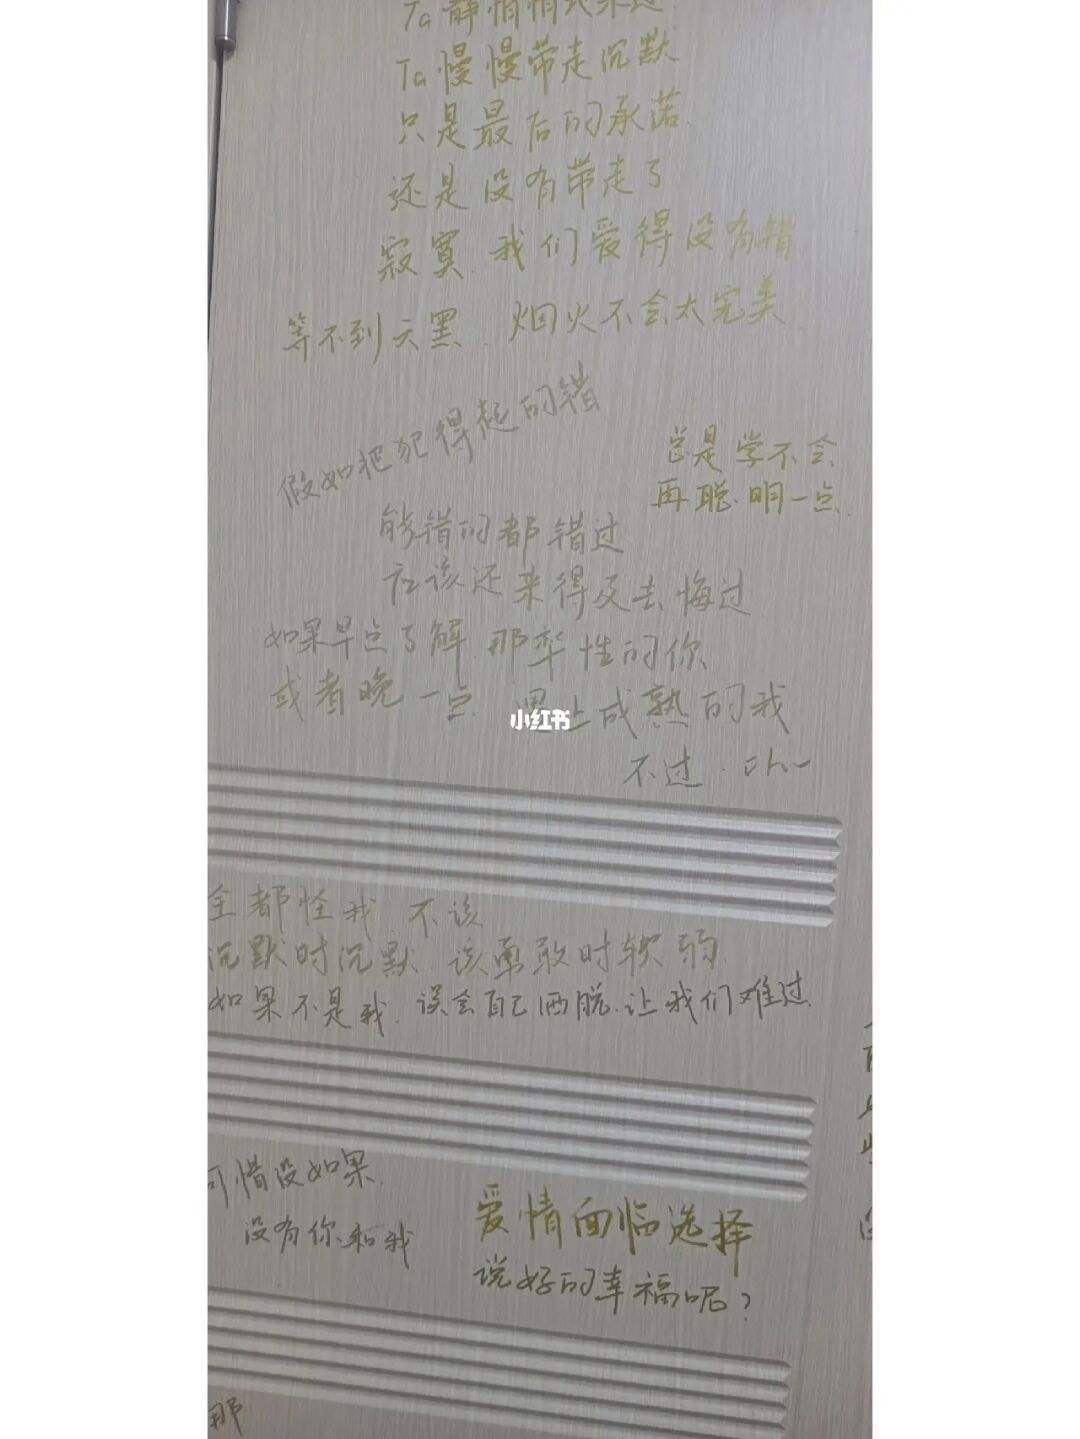 Ta静悄悄地来过
Ta慢慢带走沉默
只是最后的承诺
还是没有带走了
寂寞 我们爱得没有错
等不到天黑 烟火不会太完美
假如把犯得起的错
总是学不会
再聪明一点
能错的都错过
应该还来得及去悔过
如果早点了解 那率性的你
或者晚一点 遇上成熟的我
小红书
不过
全都怪我 不该
沉默时沉默 该勇敢时软弱
如果不是我 误会自己洒脱 让我们难过
可惜没如果
没有你和我
爱情面临选择
说好的幸福呢?
那